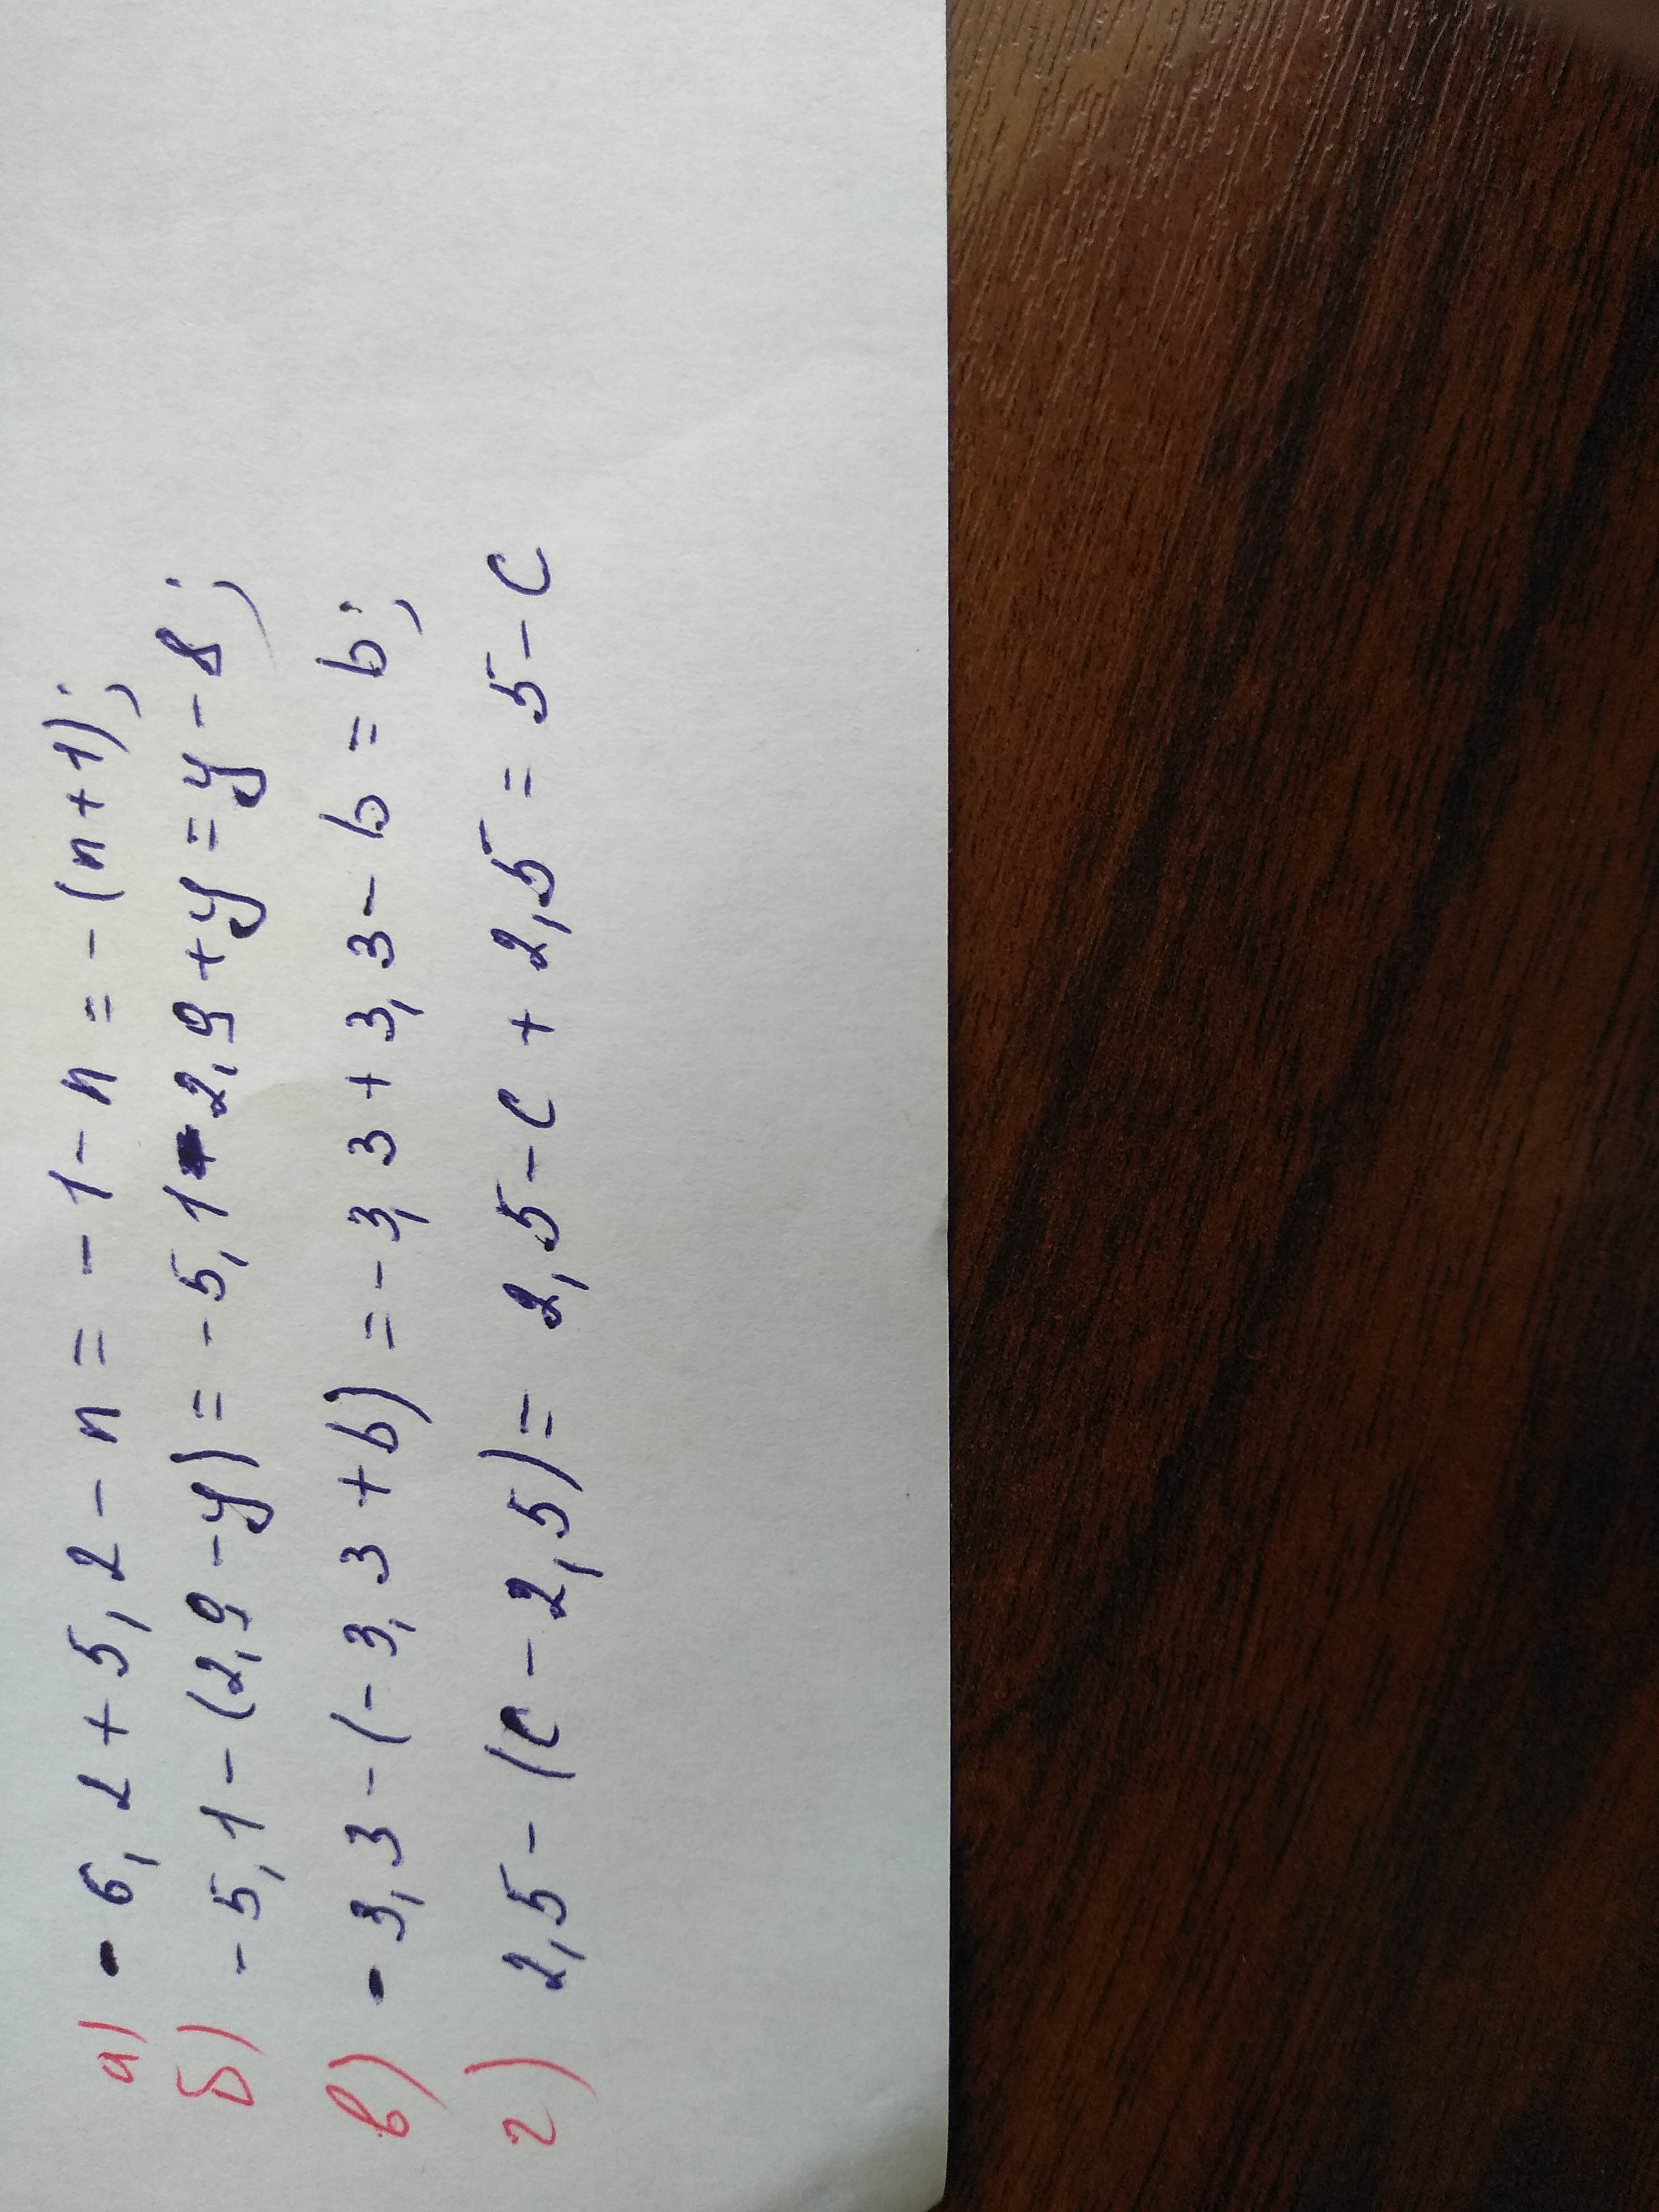 а) -6,2+5,2-n=-1-n=-(n+1);
б) -5,1-(2,9-y)=-5,1-2,9+y=y-8;
в) -3,3-(-3,3+b)=-3,3+3,3-b=b;
г) 2,5-(c-2,5)=2,5-c+2,5=5-c